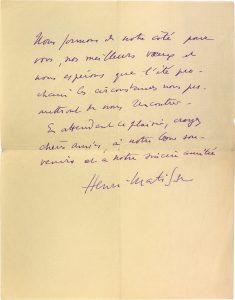 Nous formons de notre côté pour
vous, nos meilleurs vœux et
nous espérons que l'été pro-
chain les circonstances nous per-
mettront de nous rencontrer.
En attendant ce plaisir, croyez
chers amis, à notre bon sou-
venir et à notre sincère amitié
Henri-Matisse